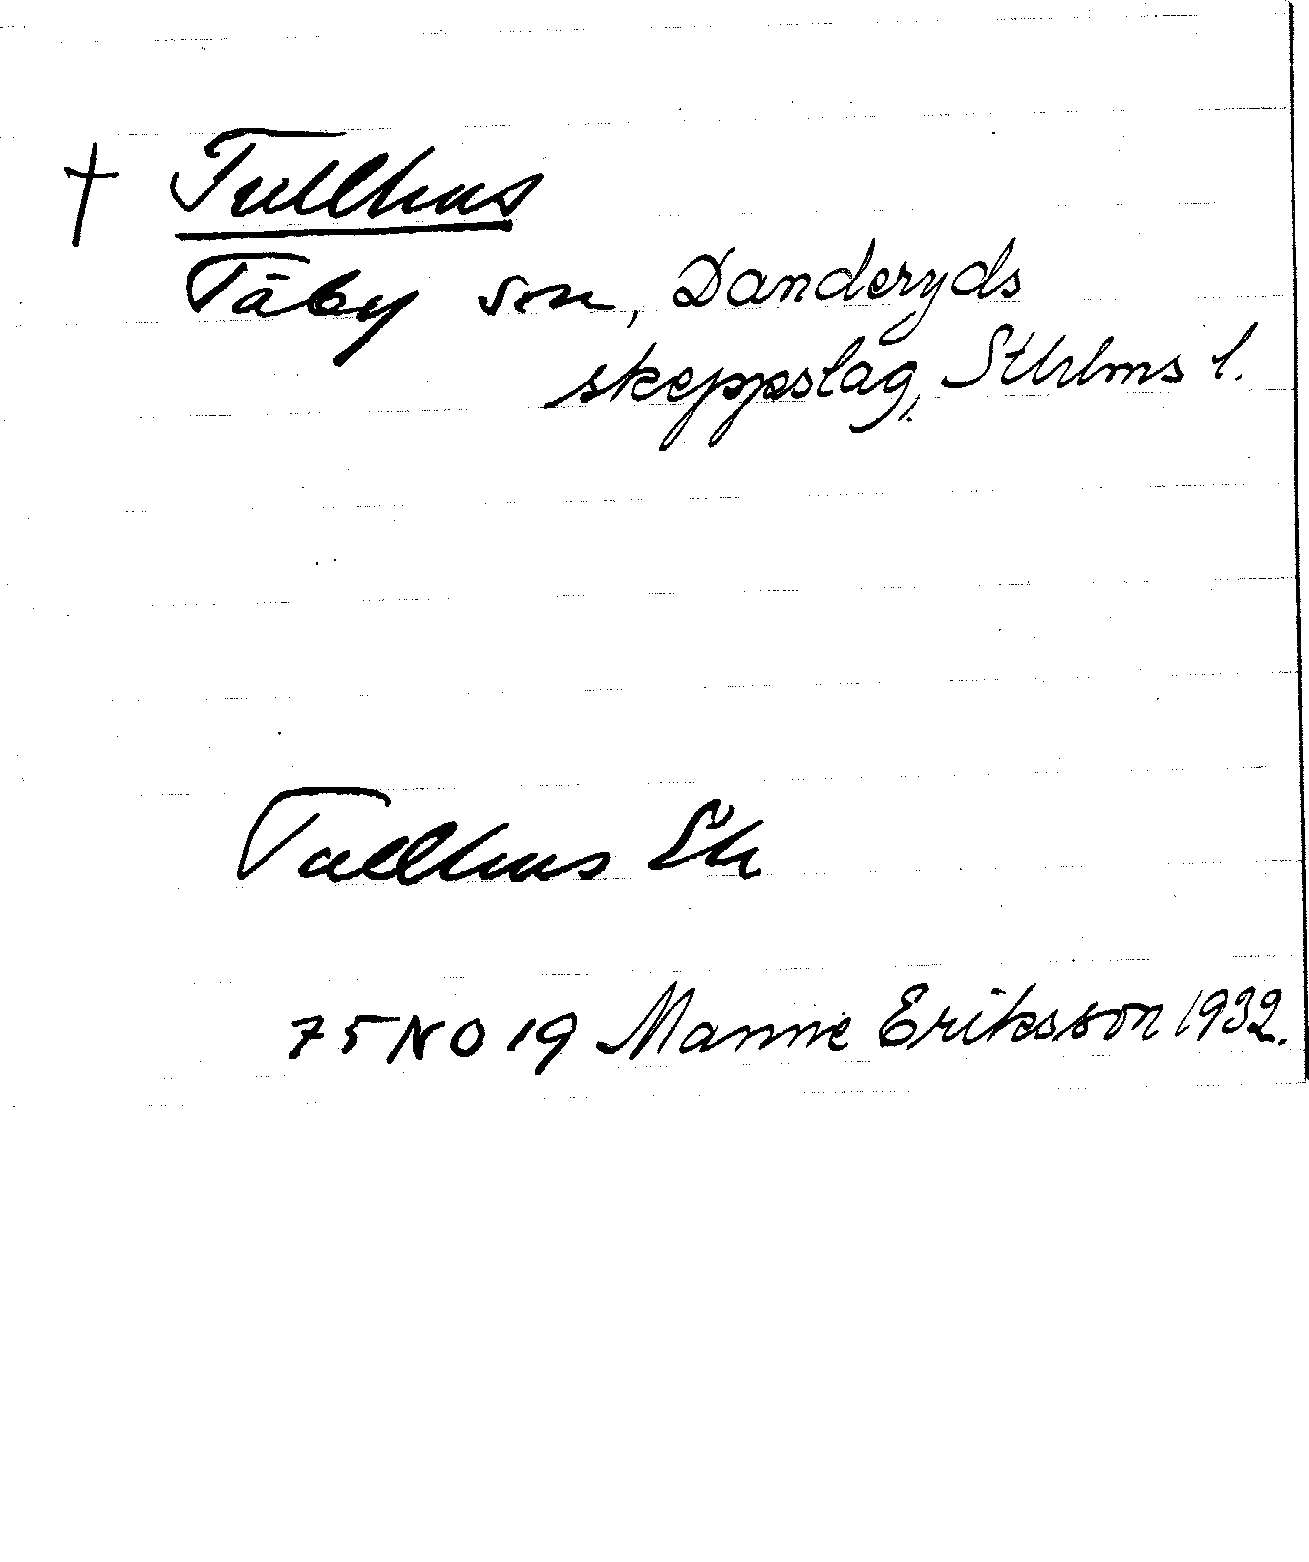 † Tullhus
Täby sn, Danderyds
skeppslag, Sthlms l.
Tullhus Ek
75 NO 19 Manne Eriksson 1932.